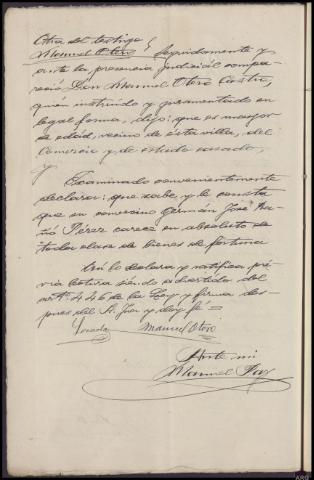 Otra del testigo
Manuel Otero } Seguidamente y
ante la presencia judicial compa-
reció Don Manuel Otero Castro,
quien instruido y juramentado en
legal forma, dijo: que es mayor
de edad, vecino de esta villa, del
Comercio y de estado casado,
y
Examinado convenientemente
declara: que sabe y le consta
que su convecino Germán José
Pérez carece en absoluto de
toda clase de bienes de fortuna
Así lo declara y ratifica pré-
via lectura siendo advertido del
artº 446 de la Ley y firma des-
pues del Sr. Juez y doy fé =
Manuel Otero
Ante mi
Manuel